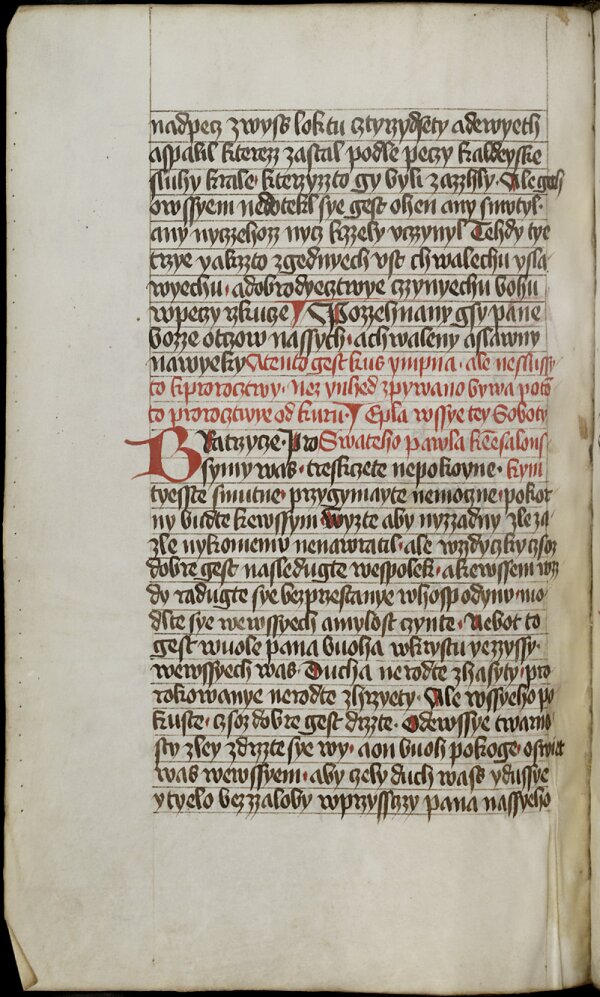 nadpecz zwyss loktu cztyrzydsety adewyeth
aspalil kterezz zastal podle peczy kaldeyske
sluhy krale· kterzyzzto gy byli zazzhly· Ale gich
owssyem nedotekl sye gest ohen any smutyl·
any nyczehozz nycz kzzely vczynyl Tehdy tye
trzye yakzto zgednyech vst chwalechu ysla-
wyechu· adobrodyecztwye czynyechu bohu
wpeczy rzkucze Pozzehnany gsy pane
bozze otczow nassych· achwaleny aslawny
nawyeky Atento gest kus ympna· ale neslussy
to kproroctwy· nez ynhed zpywano bywa potō
to proroctwye od kuru· Epla wssye tey Soboty
Bratrzycze· Pro Swateho pawla ktesalons-
symy was· treskczete nepokoyne· kym
tyesste smutne· przygymayte nemoczne· pokor
ny budte kewssym Wyzte aby nyzzadny zle za
zle nykomemu nenawratil· ale wzdyczky czsoz
dobre gest nasledugte wespolek· akewssem wz
dy radugte sye bezprzestanye whospodynu mo-
dlte sye wewssyech amylost czynte· Nebot to
gest wuole pana buoha wkrystu yezyssy·
wewssyech was· Ducha nerodte zhasyty· pro
rokowanye nerodte zhrzyety· Ale wssyeho po
kuste· czsoz dobre gest drzte· Odewssye twarno
sty zley zdrzte sye wy· aon buoh pokoge· oswiet
was wewssyem· aby czely duch wass ydussye
ytyelo bezzaloby wprzysstzy pana nassyeho